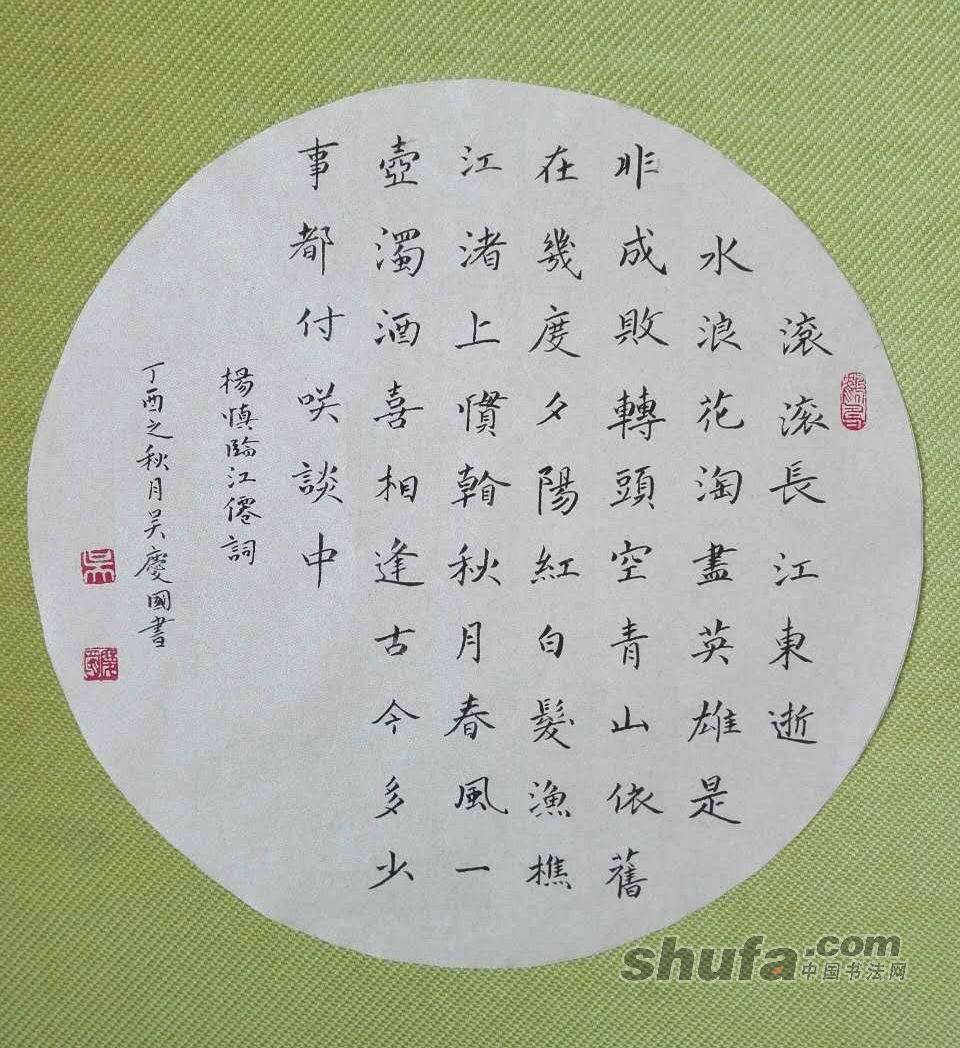 滚滚長江東逝
水浪花淘盡英雄是
非成敗轉頭空青山依舊
在幾度夕陽紅白髮漁樵
江渚上慣翰秋月春風一
壺濁酒喜相逢古今多少
事都付咲談中
楊慎臨江僊詞
丁酉之秋月吴慶國書
吴
慶國
shufa.com
中国书法网